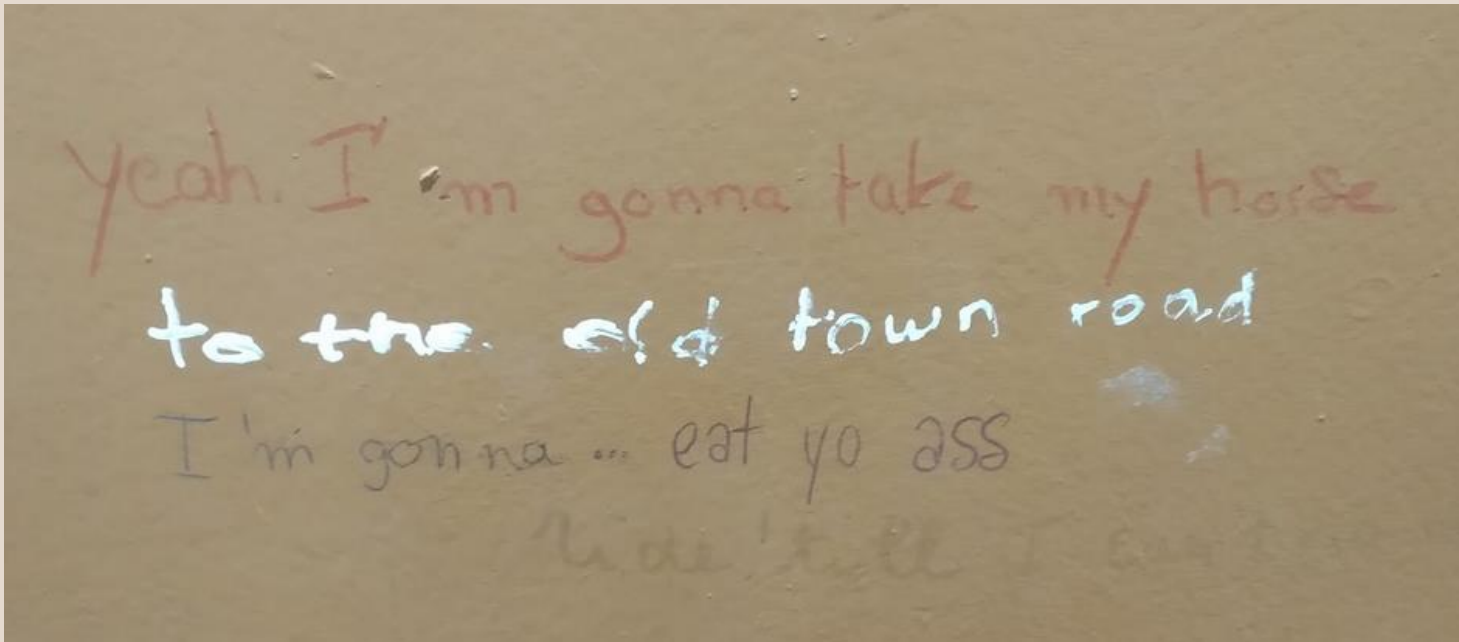 yeah. I'm gonna take my horse
to the old town road
I'm gonna... eat yo ass
ride 'till I